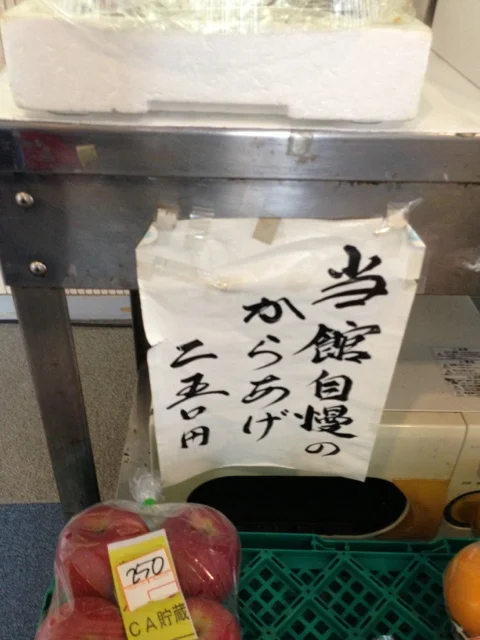 当館自慢の
からあげ
二五〇円
250
CA貯蔵